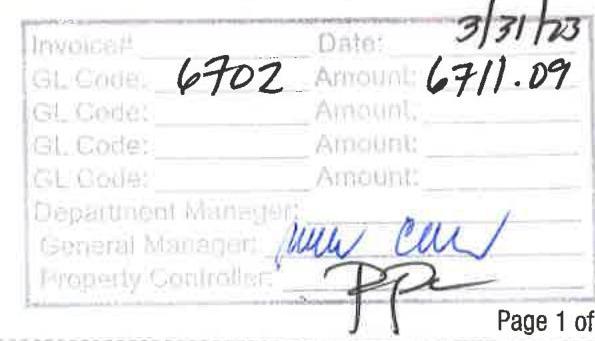 Invoice# Date: 3/31/23
GL Code: 6702 Amount: 6711.09
GL Code: Amount:
GL Code: Amount:
GL Code: Amount:
Department Manager:
General Manager:
Property Controller:
Page 1 of